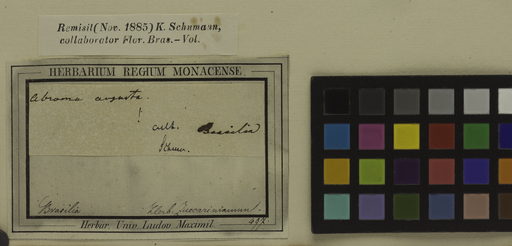 Remisit (Nov. 1885) K. Schumann,
collaborator Flor. Bras. – Vol.
HERBARIUM REGIUM MONACENSE.
Abroma augusta.
! cult. Brasilia
Schum.
Brasilia Herb. Zuccarinianum.
Herbar. Univ. Ludov. Maximil.